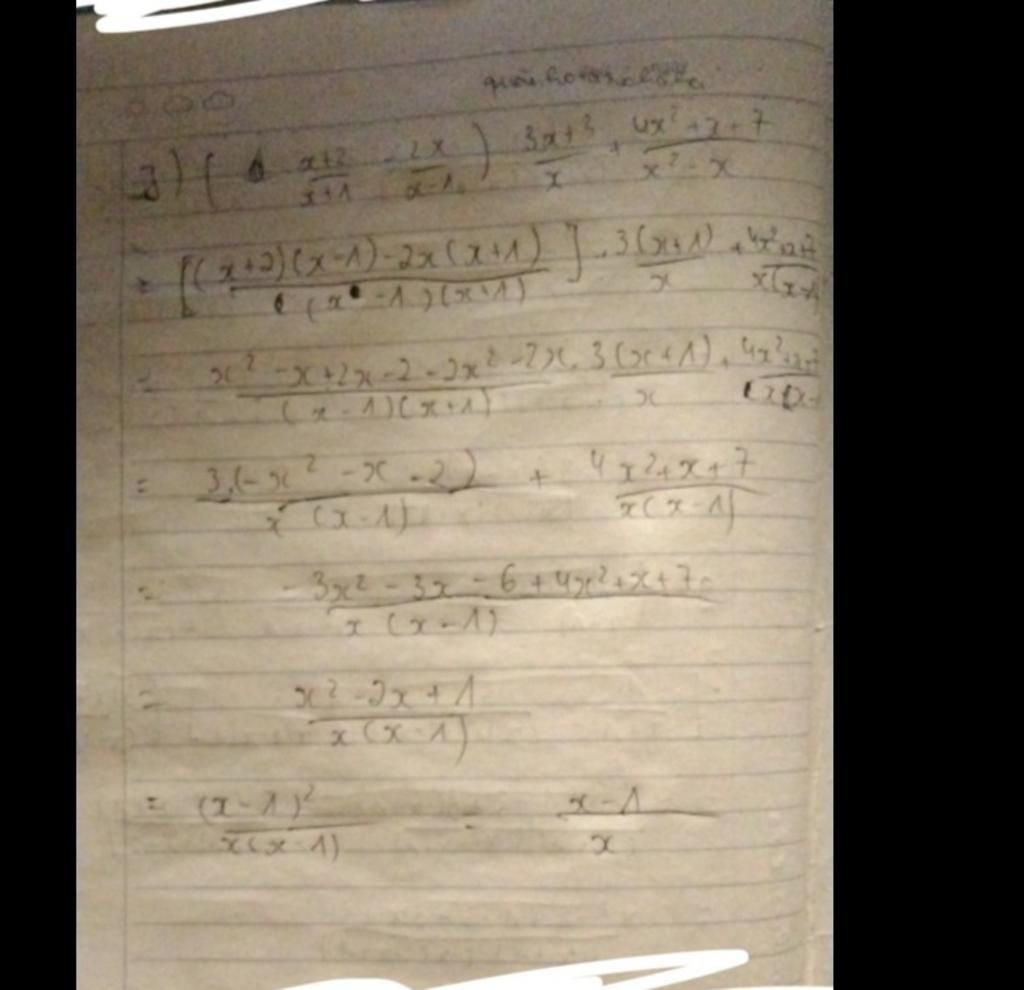 3) ( (x+2)/(x+1) - 2x/(x-1) ) (3x+3)/x + (4x²+x+7)/(x²-x)
= [ ((x+2)(x-1)-2x(x+1))/((x-1)(x+1)) ] . 3(x+1)/x + (4x²+x+7)/(x(x-1
= (x²-x+2x-2-2x²-2x)/((x-1)(x+1)) . 3(x+1)/x + (4x²+x+7)/(x(x-
= 3.(-x²-x-2)/(x(x-1)) + (4x²+x+7)/(x(x-1))
= (-3x²-3x-6+4x²+x+7)/(x(x-1))
= (x²-2x+1)/(x(x-1))
= (x-1)²/(x(x-1)) = (x-1)/x